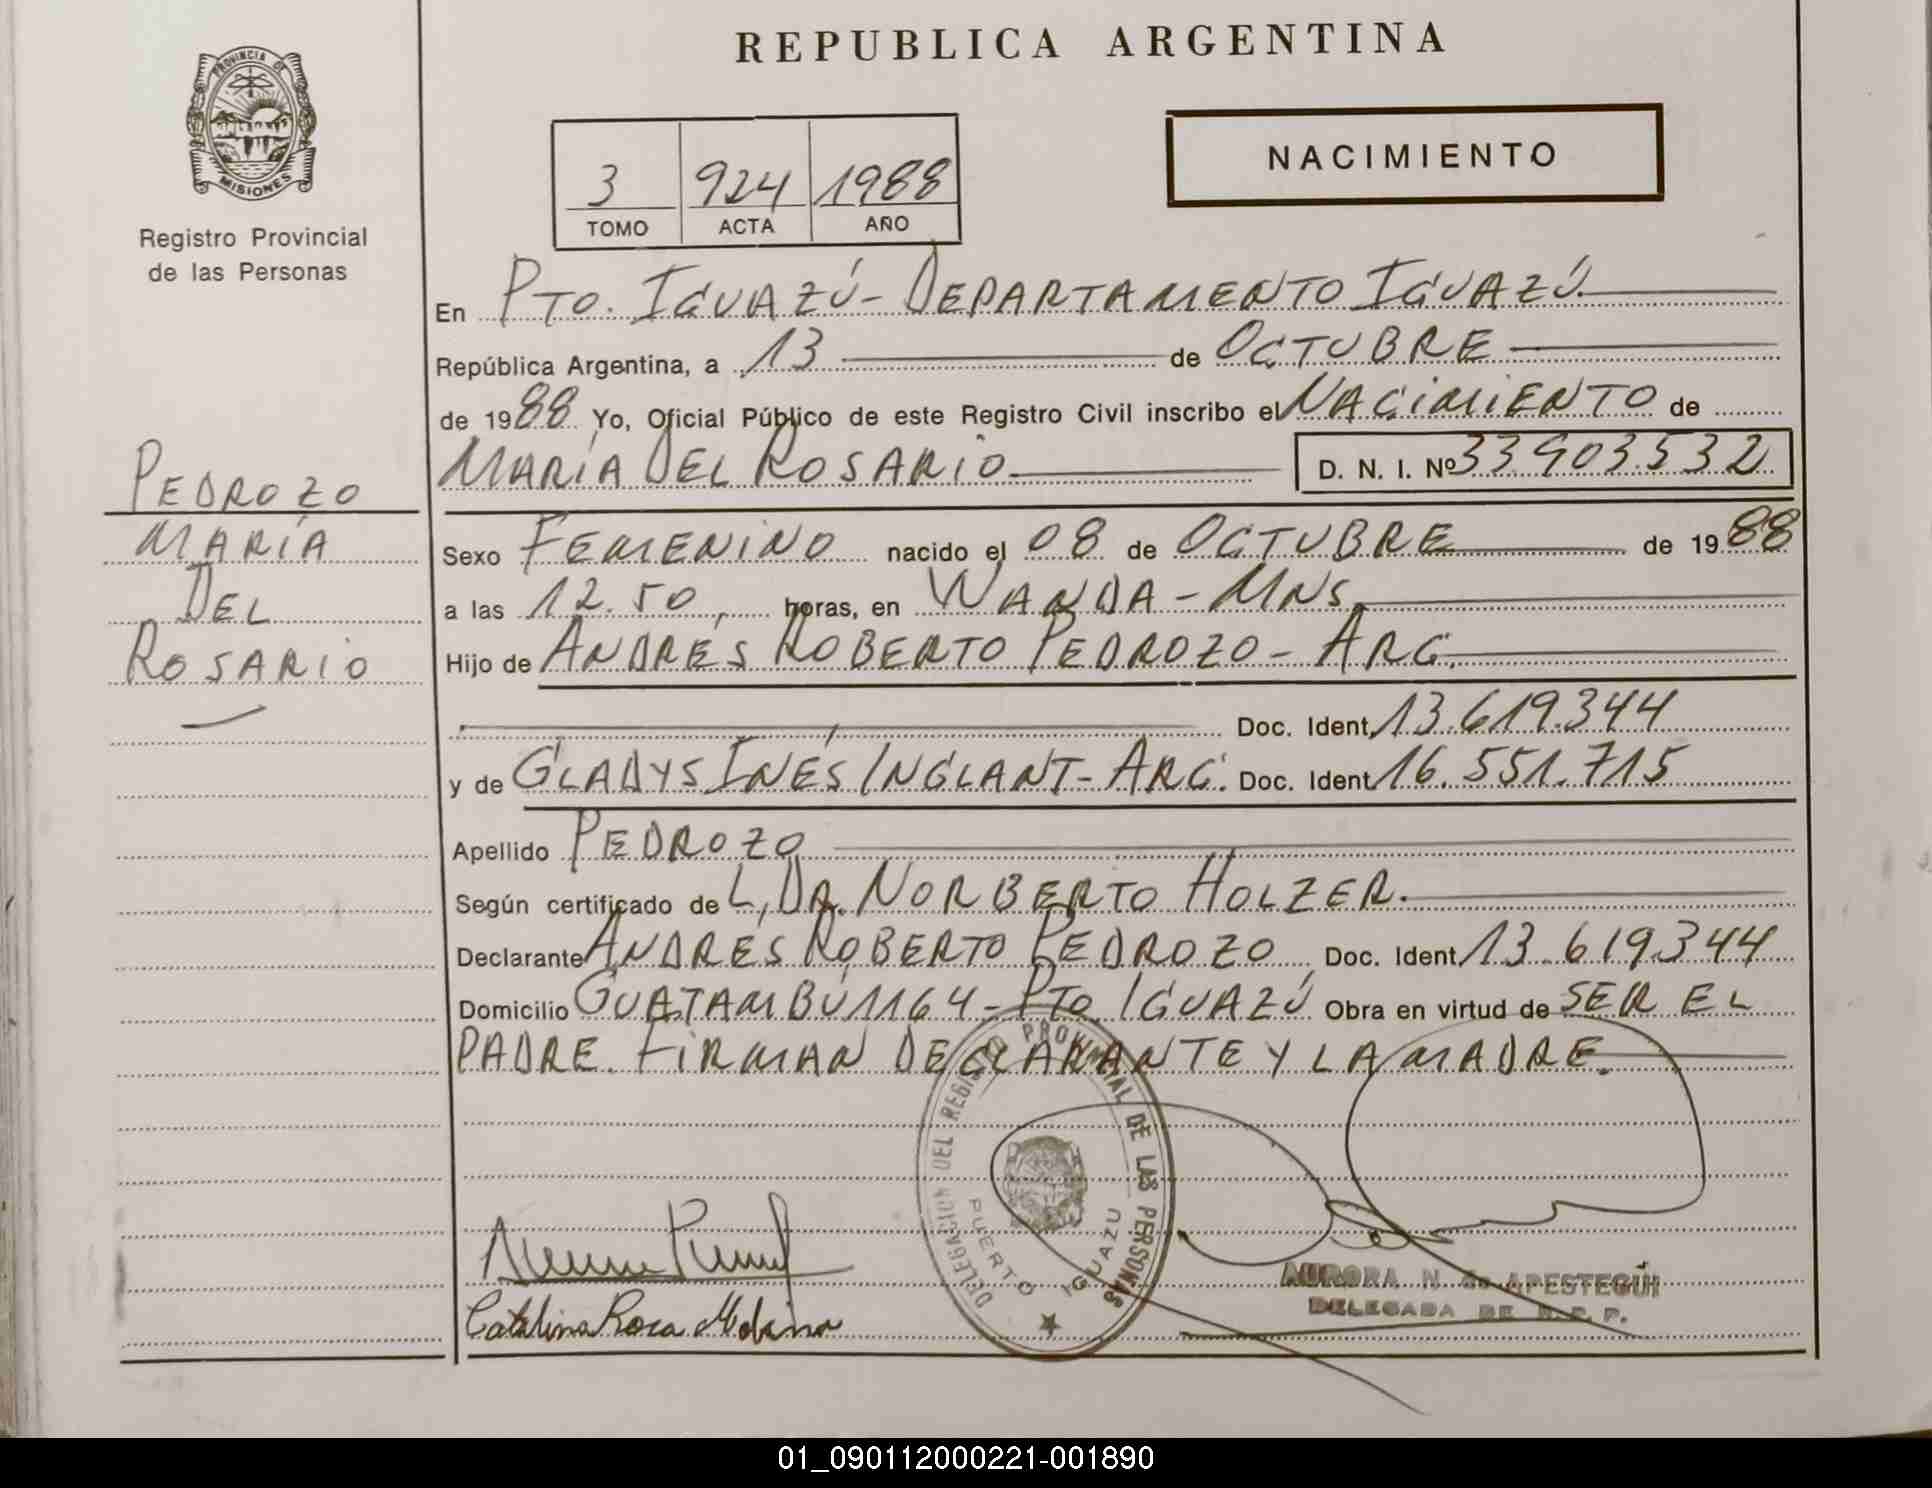 REPUBLICA ARGENTINA
PROVINCIA DE
MISIONES
Registro Provincial
de las Personas
3 924 1988
TOMO ACTA AÑO
NACIMIENTO
En PTO. IGUAZÚ - DEPARTAMENTO IGUAZÚ.
República Argentina, a 13 de OCTUBRE
de 1988 Yo, Oficial Público de este Registro Civil inscribo el NACIMIENTO de
MARÍA DEL ROSARIO D. N. I. Nº 33.903.532
PEDROZO
MARÍA
DEL
ROSARIO
Sexo FEMENINO nacido el 08 de OCTUBRE de 1988
a las 12.50, horas, en WANDA - MNS.
Hijo de ANDRÉS ROBERTO PEDROZO - ARG.
Doc. Ident. 13.619.344
y de GLADYS INÉS INGLANT - ARG. Doc. Ident. 16.551.715
Apellido PEDROZO
Según certificado de L, DR. NORBERTO HOLZER.
Declarante ANDRÉS ROBERTO PEDROZO Doc. Ident 13.619.344
Domicilio GUATAMBÚ 1164 - PTO. IGUAZÚ Obra en virtud de SER EL
PADRE. FIRMAN DECLARANTE Y LA MADRE.
DELEGACION DEL REGISTRO PROVINCIAL DE LAS PERSONAS
PUERTO IGUAZU
Catalina Rosa
AURORA N. de APESTEGUI
DELEGADA DE R. P. P.
01_090112000221-001890